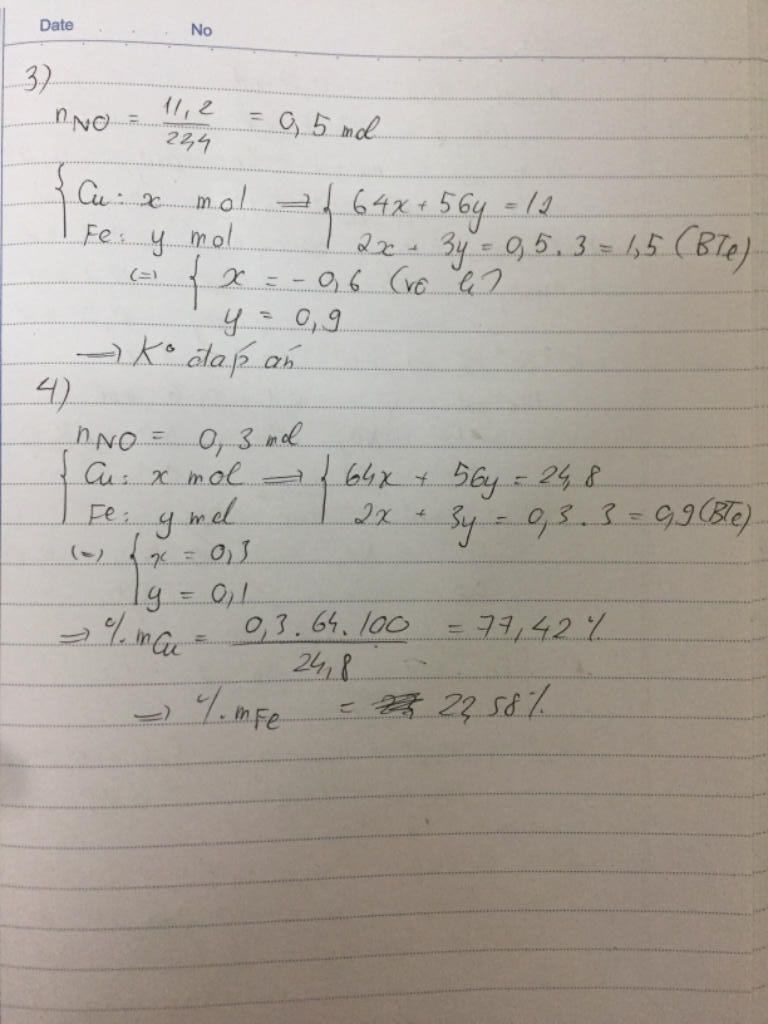 Date No
3)
nNO = 11,2 / 22,4 = 0,5 mol
{ Cu: x mol => { 64x + 56y = 12
Fe: y mol 2x + 3y = 0,5 . 3 = 1,5 (BTe)
(=) { x = - 0,6 (vô lí)
y = 0,9
=> K° đáp án
4)
nNO = 0,3 mol
{ Cu: x mol => { 64x + 56y = 24,8
Fe: y mol 2x + 3y = 0,3 . 3 = 0,9 (BTe)
(=) { x = 0,3
y = 0,1
=> %mCu = 0,3 . 64 . 100 / 24,8 = 77,42 %
=> %mFe = 22,58%